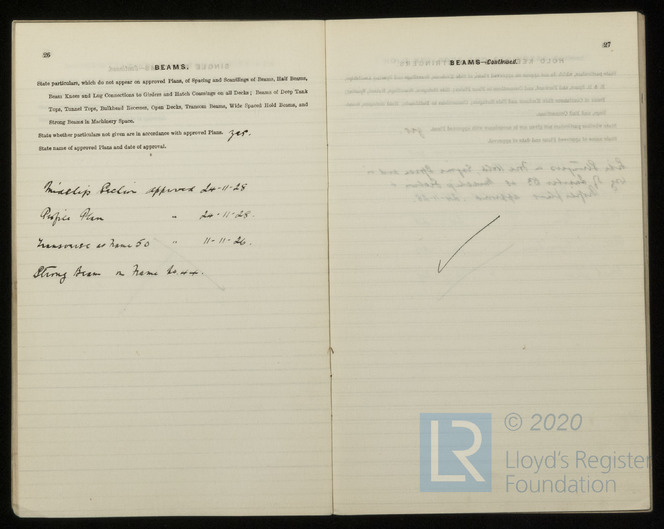 26
BEAMS.
State particulars, which do not appear on approved Plans, of Spacing and Scantlings of Beams, Half Beams,
Beam Knees and Lug Connections to Girders and Hatch Coamings on all Decks; Beams of Deep Tank
Tops, Tunnel Tops, Bulkhead Recesses, Open Decks, Transom Beams, Wide Spaced Hold Beams, and
Strong Beams in Machinery Space.
State whether particulars not given are in accordance with approved Plans. yes.
State name of approved Plans and date of approval.
Midship Section approved 24-11-28
Profile Plan " 24-11-28.
Transverse at Frame 50 " 11-11-26.
Strong Beam on Frame No. 44.
27
BEAMS—Continued.
LR
© 2020
Lloyd's Register
Foundation